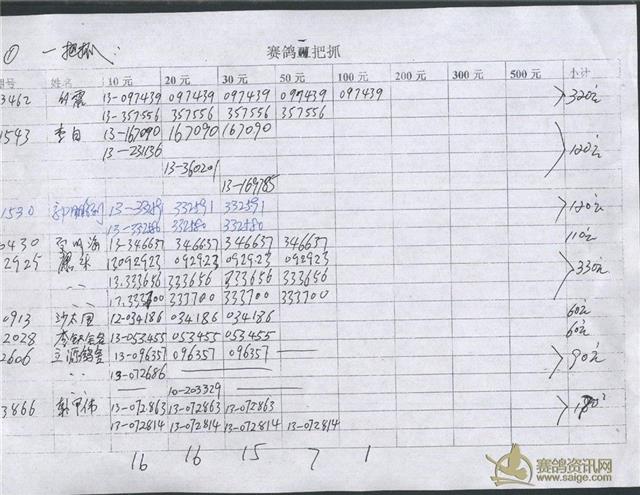 ① 一把抓:
赛鸽 把抓
号 姓名 10 元 20 元 30 元 50 元 100 元 200 元 300 元 500 元 小计
3462 震 13-097439 097439 097439 097439 097439 320元
13-357556 357556 357556 357556
1543 李白 13-167090 167090 167090 120元
13-231136
13-360201
13-169785
1530 332591 332591 120元
13-332580 332580 332580
0430 13-346637 346637 346637 346637 110元
2925 13092923 092923 092923 092923 330元
13.333656 333656 333656 333656
333700 333700 333700
0913 沙太国 12-034186 034186 034186 60元
2028 13-053455 053455 053455 60元
2606 13-096357 096357 096357 90元
13-072686
10-203329
3866 伟 13-072863 13-072863 13-072863
13-072814 13-072814 13-072814 13-072814
16 16 15 7 1
赛鸽资讯网
www.saige.com